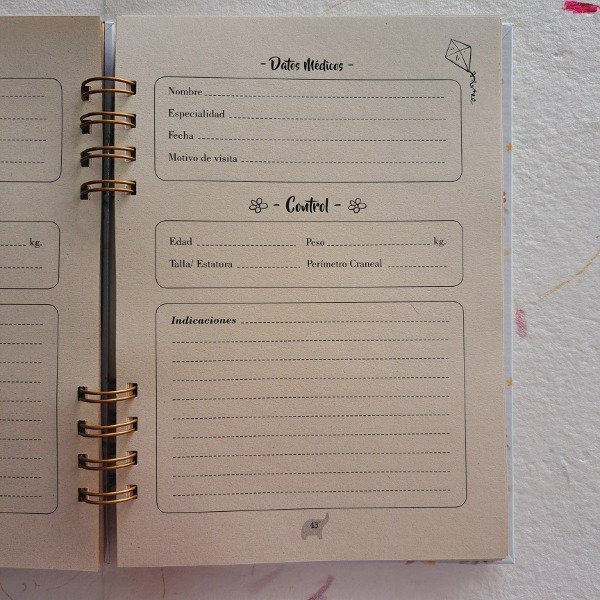 - Datos Médicos -
Nombre
Especialidad
Fecha
Motivo de visita
- Control -
Edad Peso kg.
Talla/ Estatura Perímetro Craneal
Indicaciones
43
kg.